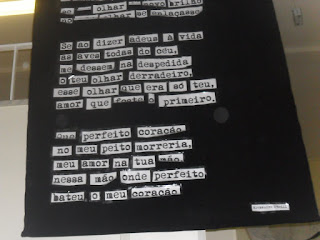 olhar novo brilho
no olhar se enlaçasse
Se ao dizer adeus à vida
as aves todas do céu,
me dessem na despedida
o teu olhar derradeiro,
esse olhar que era só teu,
amor que foste o primeiro.
Que perfeito coração
no meu peito morreria,
meu amor na tua mão,
nessa mão onde perfeito
bateu o meu coração